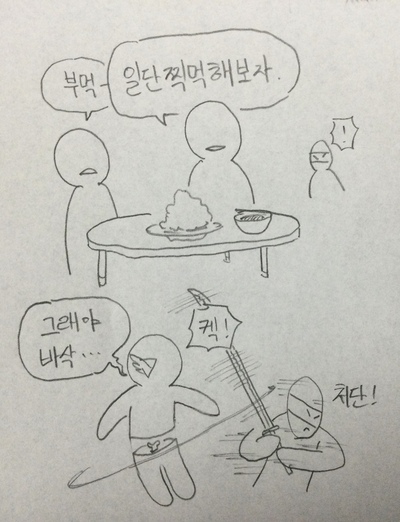 부먹-
일단 찍먹해보자.
!
그래야
바삭...
켁!
처단!